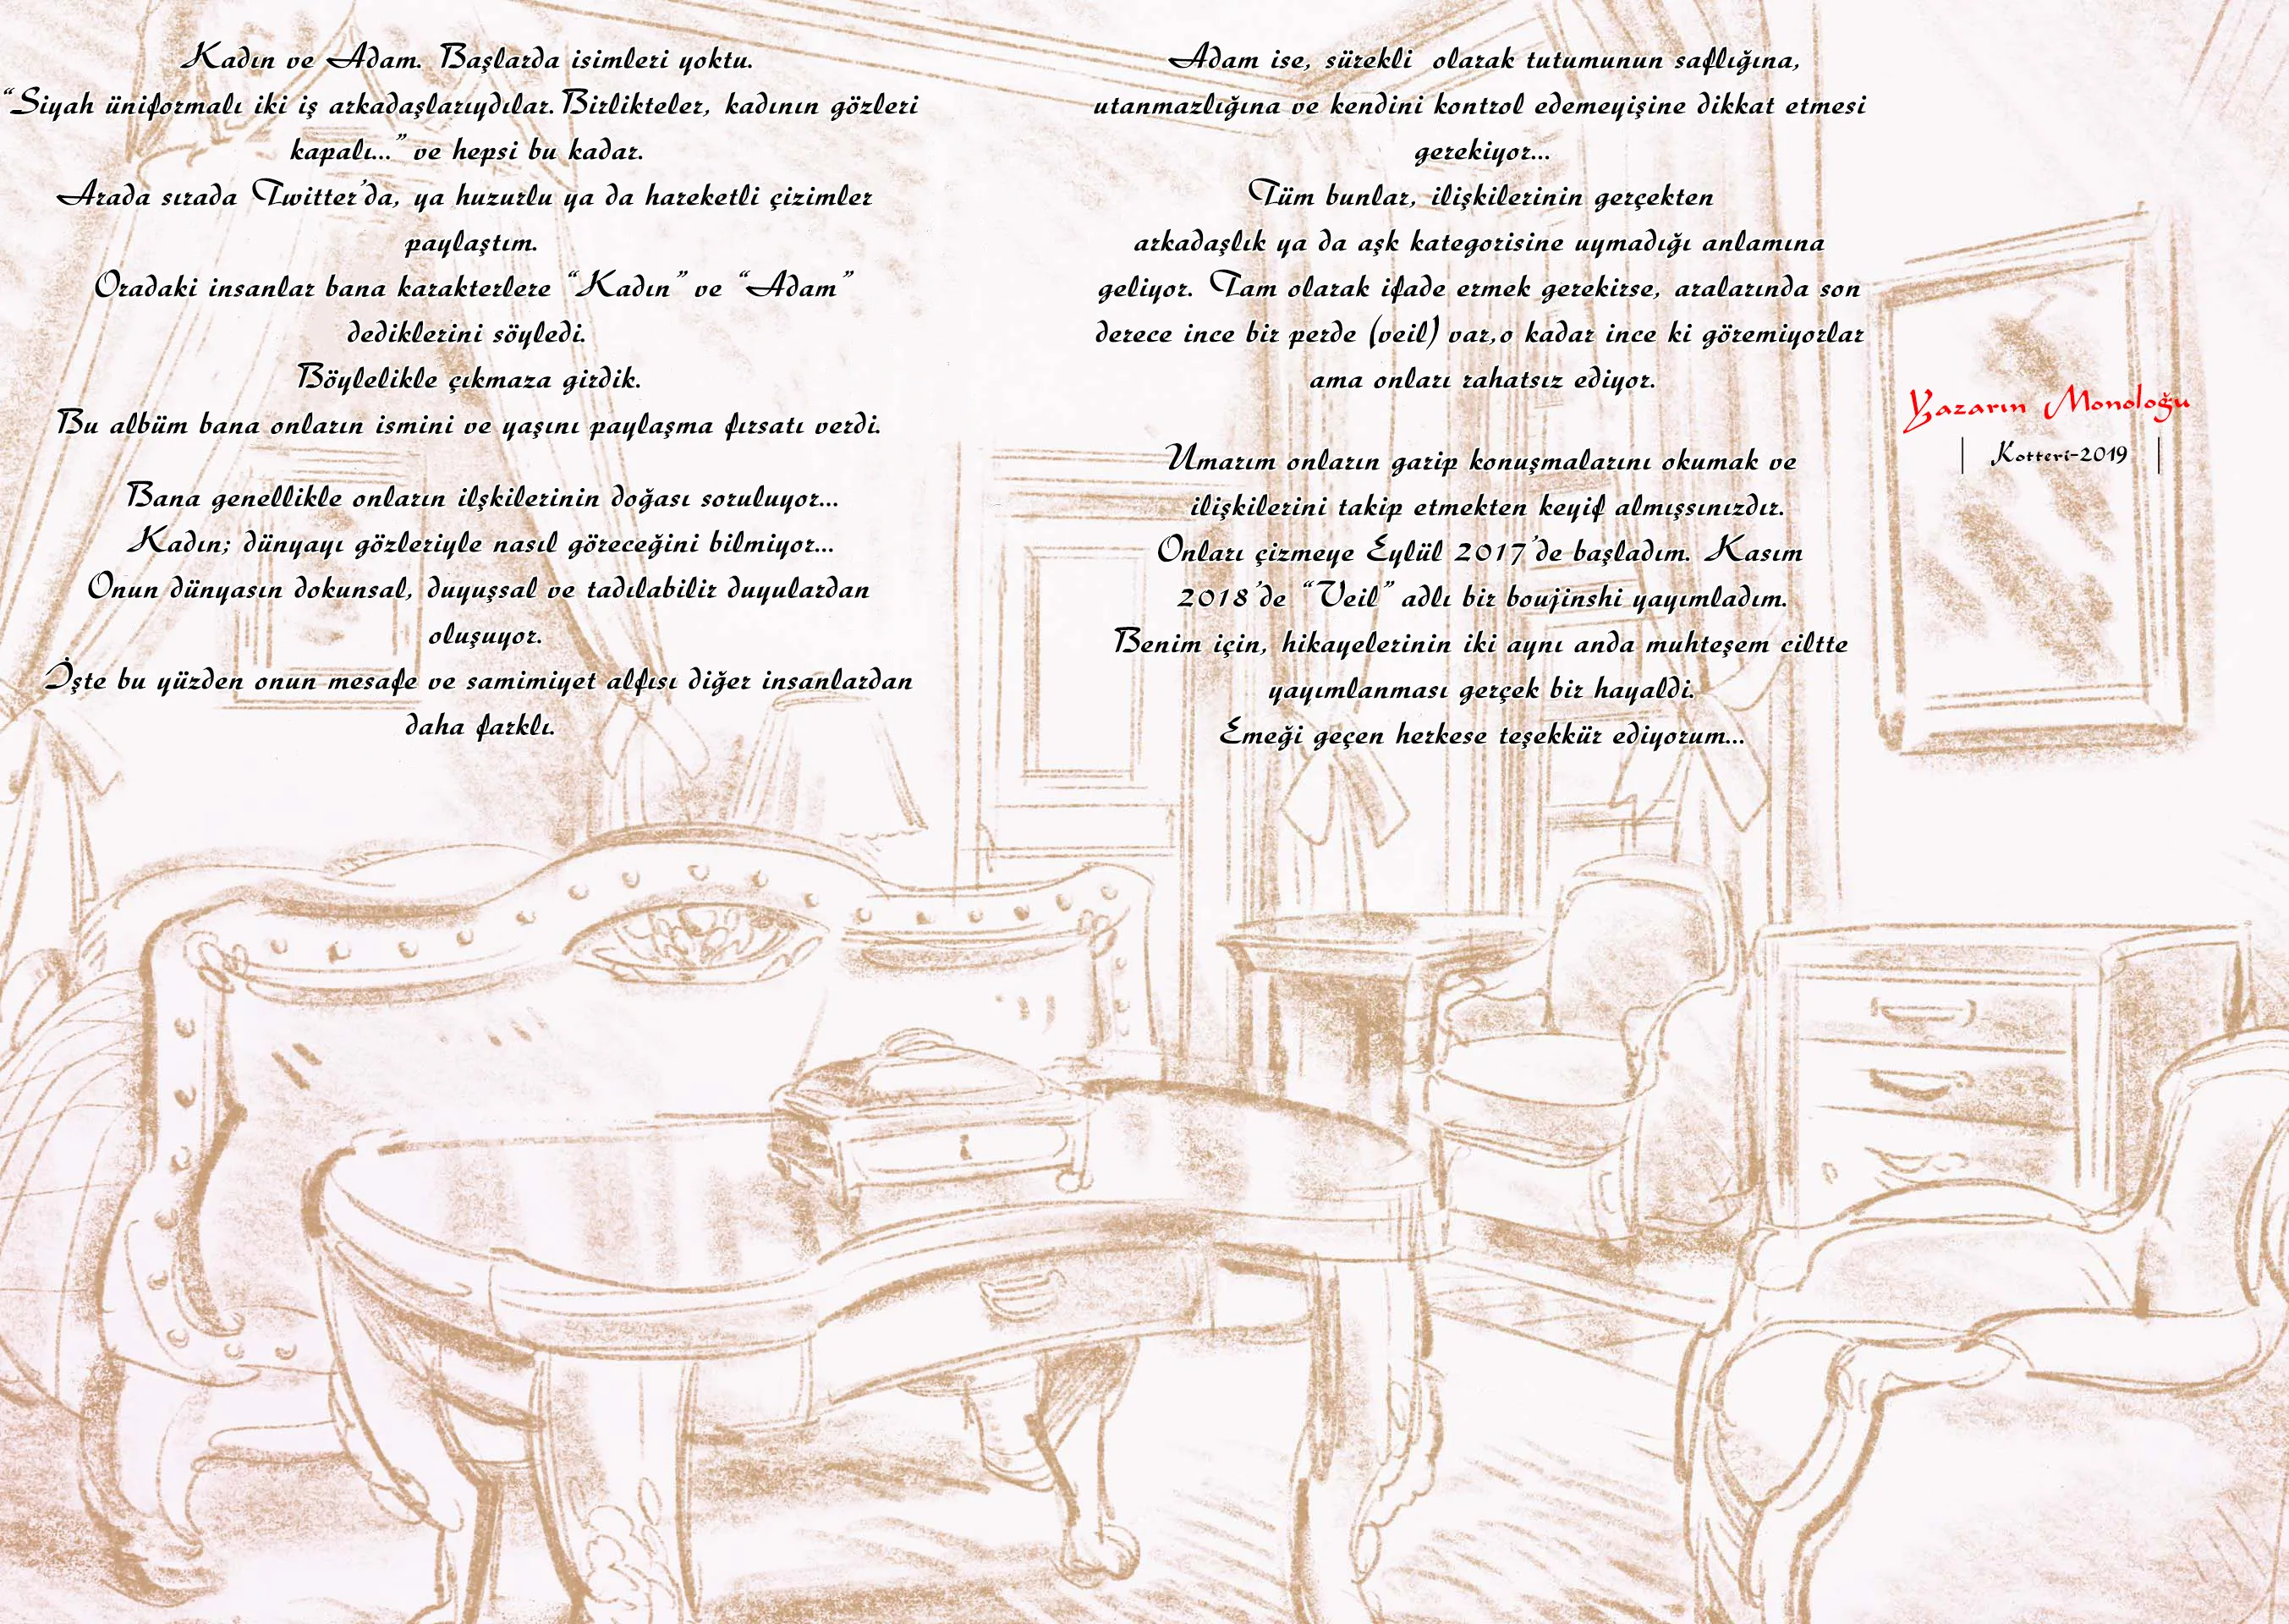 Kadın ve Adam. Başlarda isimleri yoktu.
“Siyah üniformalı iki iş arkadaşlarıydılar. Birlikteler, kadının gözleri
kapalı...” ve hepsi bu kadar.
Arada sırada Twitter’da, ya huzurlu ya da hareketli çizimler
paylaştım.
Oradaki insanlar bana karakterlere “Kadın” ve “Adam”
dediklerini söyledi.
Böylelikle çıkmaza girdik.
Bu albüm bana onların ismini ve yaşını paylaşma fırsatı verdi.
Bana genellikle onların ilşkilerinin doğası soruluyor...
Kadın; dünyayı gözleriyle nasıl göreceğini bilmiyor...
Onun dünyasın dokunsal, duyuşsal ve tadılabilir duyulardan
oluşuyor.
İşte bu yüzden onun mesafe ve samimiyet alfısı diğer insanlardan
daha farklı.
Adam ise, sürekli olarak tutumunun saflığına,
utanmazlığına ve kendini kontrol edemeyişine dikkat etmesi
gerekiyor...
Tüm bunlar, ilişkilerinin gerçekten
arkadaşlık ya da aşk kategorisine uymadığı anlamına
geliyor. Tam olarak ifade ermek gerekirse, aralarında son
derece ince bir perde (veil) var,o kadar ince ki göremiyorlar
ama onları rahatsız ediyor.
Umarım onların garip konuşmalarını okumak ve
ilişkilerini takip etmekten keyif almışsınızdır.
Onları çizmeye Eylül 2017’de başladım. Kasım
2018’de “Veil” adlı bir boujinshi yayımladım.
Benim için, hikayelerinin iki aynı anda muhteşem ciltte
yayımlanması gerçek bir hayaldi.
Emeği geçen herkese teşekkür ediyorum...
Yazarın Monoloğu
| Kotteri-2019 |